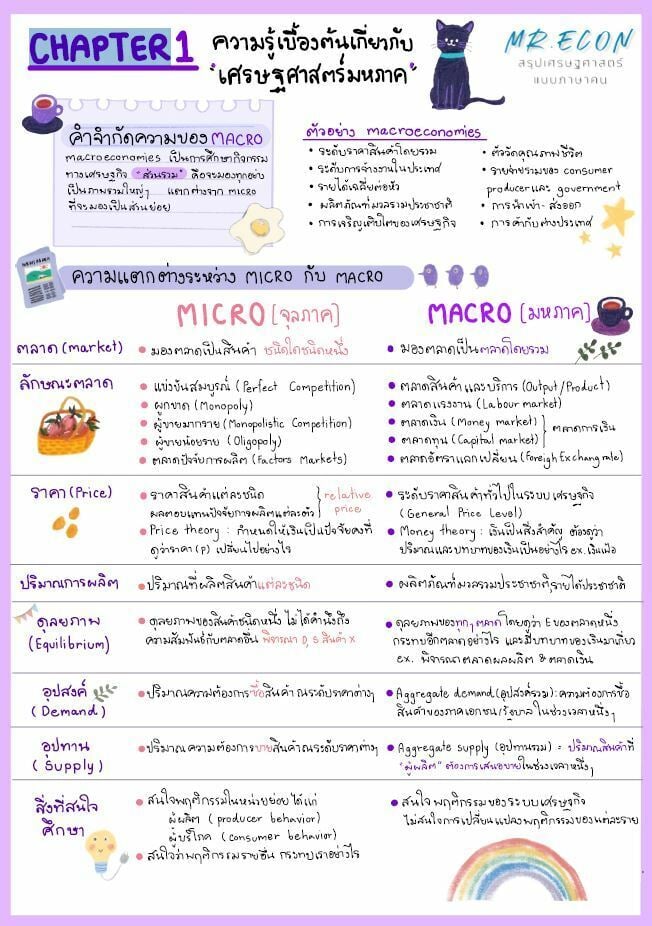 CHAPTER 1
ความรู้เบื้องต้นเกี่ยวกับ
"เศรษฐศาสตร์มหภาค"
MR.ECON
สรุปเศรษฐศาสตร์
แบบภาษาคน
คำจำกัดความของ MACRO
macroeconomies เป็นการศึกษากิจกรรม
ทางเศรษฐกิจ "ส่วนรวม" คือจะมองทุกอย่าง
เป็นภาพรวมใหญ่ๆ แตกต่างจาก micro
ที่จะมองเป็นส่วนย่อย
ตัวอย่าง macroeconomies
• ระดับราคาสินค้าโดยรวม
• ระดับการจ้างงานในประเทศ
• รายได้เฉลี่ยต่อหัว
• ผลิตภัณฑ์มวลรวมประชาชาติ
• การเจริญเติบโตของเศรษฐกิจ
• ตัววัดคุณภาพชีวิต
• รายจ่ายรวมของ consumer
producer และ government
• การนำเข้า - ส่งออก
• การค้ากับต่างประเทศ
ความแตกต่างระหว่าง MICRO กับ MACRO
MICRO [จุลภาค]
MACRO [มหภาค]
ตลาด (market)
• มองตลาดเป็นสินค้า ชนิดใดชนิดหนึ่ง
• มองตลาดเป็นตลาดโดยรวม
ลักษณะตลาด
• แข่งขันสมบูรณ์ (Perfect Competition)
• ผูกขาด (Monopoly)
• ผู้ขายมากราย (Monopolistic Competition)
• ผู้ขายน้อยราย (Oligopoly)
• ตลาดปัจจัยการผลิต (Factors Markets)
• ตลาดสินค้าและบริการ (Output/Product)
• ตลาดแรงงาน (Labour market)
• ตลาดเงิน (Money market)
• ตลาดทุน (Capital market)
ตลาดการเงิน
• ตลาดอัตราแลกเปลี่ยน (Foreigh Exchang rate)
ราคา (Price)
• ราคาสินค้าแต่ละชนิด
ผลตอบแทนปัจจัยการผลิตแต่ละตัว
relative
price
• Price theory : กำหนดให้เงินเป็นปัจจัยคงที่
ดูว่าราคา (P) เปลี่ยนไปอย่างไร
• ระดับราคาสินค้าทั่วไปในระบบเศรษฐกิจ
(General Price Level)
• Money theory : เงินเป็นสิ่งสำคัญ ต้องดูว่า
ปริมาณและบทบาทของเงินเป็นอย่างไร ex. เงินเฟ้อ
ปริมาณการผลิต
• ปริมาณที่ผลิตสินค้าแต่ละชนิด
• ผลิตภัณฑ์มวลรวมประชาชาติ, รายได้ประชาชาติ
ดุลยภาพ
(Equilibrium)
• ดุลยภาพของสินค้าชนิดหนึ่ง ไม่ได้คำนึงถึง
ความสัมพันธ์กับตลาดอื่น พิจารณา D, S สินค้า X
• ดุลยภาพของทุกๆ ตลาด โดยดูว่า E ของตลาดหนึ่ง
กระทบอีกตลาดอย่างไร และมีบทบาทของเงินมาเกี่ยว
ex. พิจารณาตลาดผลผลิต & ตลาดเงิน
อุปสงค์
(Demand)
• ปริมาณความต้องการซื้อสินค้า ณ ระดับราคาต่างๆ
• Aggregate demand (อุปสงค์รวม) : ความต้องการซื้อ
สินค้าของภาคเอกชน/รัฐบาล ในช่วงเวลาหนึ่งๆ
อุปทาน
(Supply)
• ปริมาณความต้องการขายสินค้า ณ ระดับราคาต่างๆ
• Aggregate supply (อุปทานรวม) = ปริมาณสินค้าที่
"ผู้ผลิต" ต้องการเสนอขายในช่วงเวลาหนึ่งๆ
สิ่งที่สนใจ
ศึกษา
• สนใจพฤติกรรมในหน่วยย่อย ได้แก่
ผู้ผลิต (producer behavior)
ผู้บริโภค (consumer behavior)
• สนใจว่าพฤติกรรมรายอื่น กระทบเราอย่างไร
• สนใจพฤติกรรมของระบบเศรษฐกิจ
ไม่สนใจการเปลี่ยนแปลงพฤติกรรมของแต่ละราย